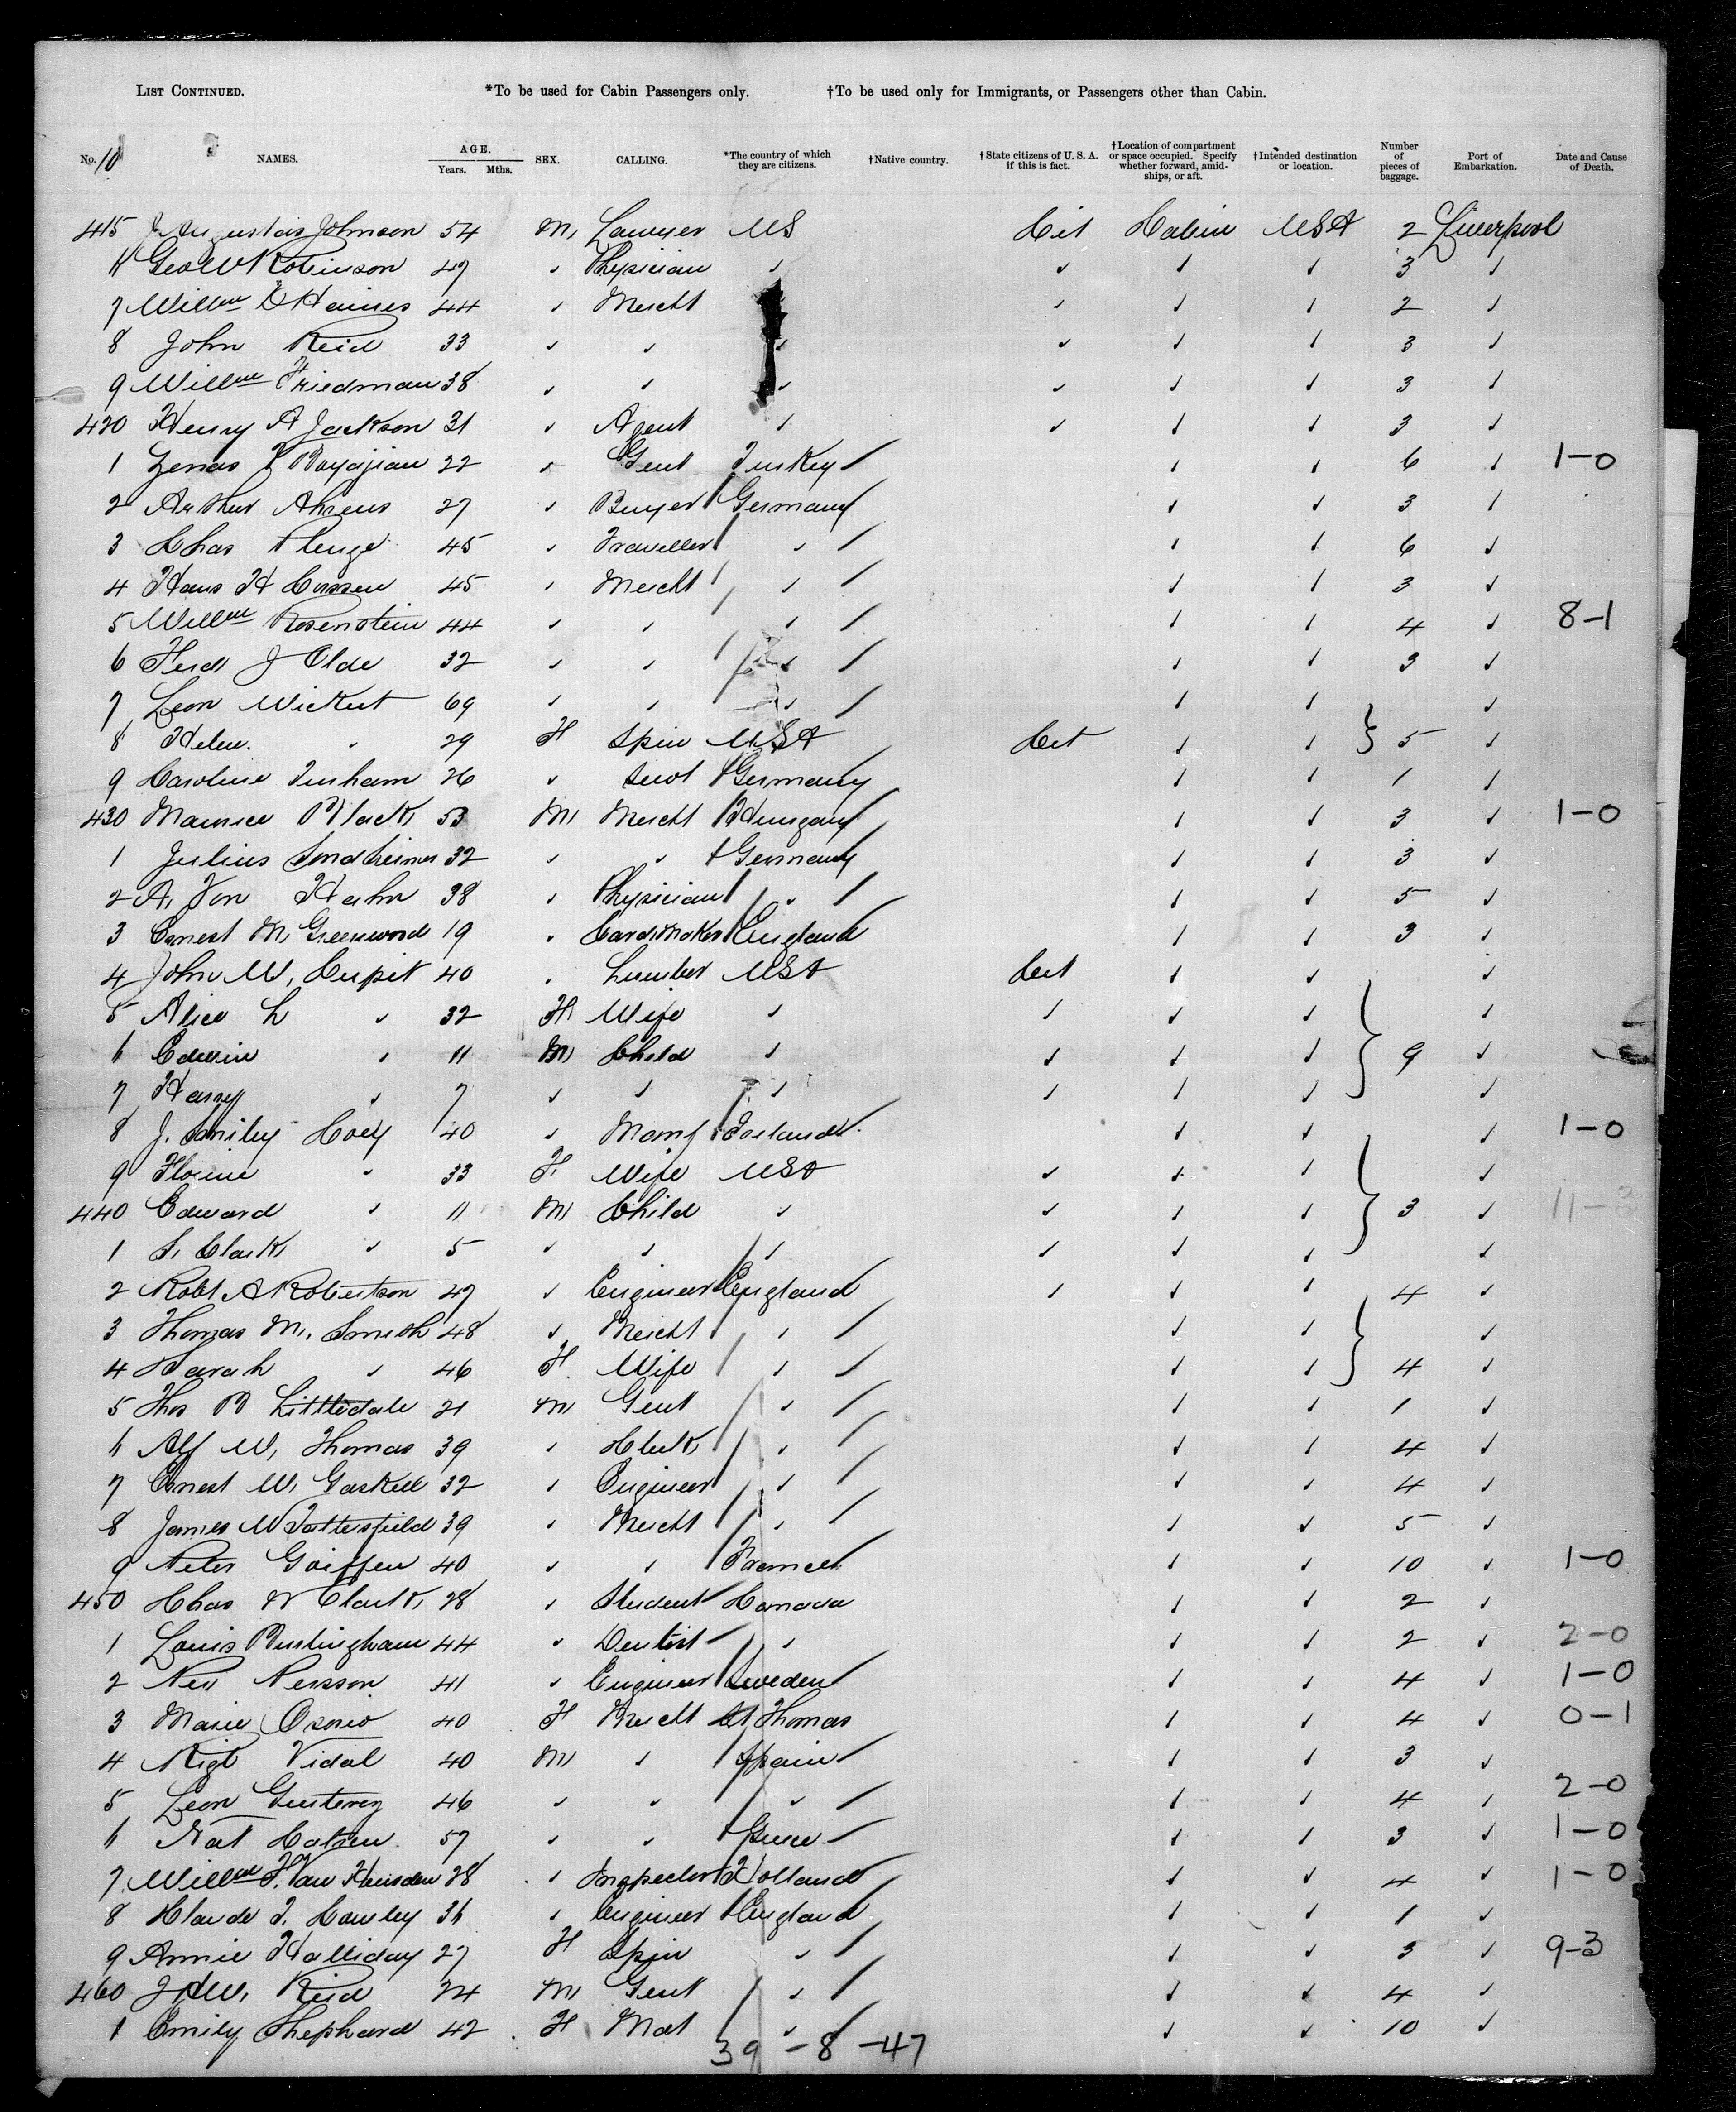 LIST CONTINUED. *To be used for Cabin Passengers only. †To be used only for Immigrants, or Passengers other than Cabin.
No. 10 NAMES. AGE. Years. Mths. SEX. CALLING. *The country of which they are citizens. †Native country. †State citizens of U. S. A. if this is fact. †Location of compartment or space occupied. Specify whether forward, amidships, or aft. †Intended destination or location. Number of pieces of baggage. Port of Embarkation. Date and Cause of Death.
415 J. Augustus Johnson 54 M Lawyer US Cit Cabin USA 2 Liverpool
6 Geo W Robinson 47 Physician 3
7 Willm Haines 44 Mercht 2
8 John Reid 33 3
9 Willm Friedman 38 3
420 Henry A Jackson 31 Agent 3
1 Zenas Bayajian 22 Gent Turkey 6 1-0
2 Arthur Ahrens 27 Buyer Germany 3
3 Chas Plenge 45 Traveller 6
4 Hans H Corssen 45 Mercht 3
5 Willm Rosenstein 44 4 8-1
6 Ferd J Olde 32 3
7 Leon Wickert 69
8 Helen 29 F Spin USA Cit 5
9 Caroline 26 Germany 1
430 Maurice Black 53 M Mercht Hungary 3 1-0
1 Julius Sondheimer 32 Germany 3
2 A. Von Hahn 38 Physician 5
3 Ernest M. Greenwood 19 Cardmaker England 3
4 John W. Cupit 40 Lumber USA Cit
5 Alice L 32 F Wife
6 Edwin 11 M Child 9
7 Harry 7
8 J. Smiley Hoey 40 Manf 1-0
9 33 F Wife USA
440 Edward 11 M Child 3
1 S. Clark 5
2 Robt A Robertson 47 Engineer England 4
3 Thomas M. Smith 48 Mercht
4 Sarah 46 F Wife 4
5 Thos B Littledale 21 M Gent 1
6 Alf W. Thomas 39 Clerk 4
7 Ernest W. Gaskell 32 Engineer 4
8 James W Tattersfield 39 Mercht 5
9 Peter Goiffen 40 France 10 1-0
450 Chas W Clark 28 Student Canada 2
1 Louis Burlingham 44 Dentist 2 2-0
2 Persson 41 Engineer Sweden 4 1-0
3 Marie Osorio 40 F Mercht St Thomas 4 0-1
4 Vidal 40 M Spain 3
5 Leon 46 4 2-0
6 Nat 57 3 1-0
7 Willm F. Van Heusden 28 Inspector Holland 4 1-0
8 Claude T. Cowley 36 Engineer England 1
9 Annie Halliday 27 F Spin 3 9-3
460 Reid 24 M Gent 4
1 Emily Shephard 42 F Mat 10
39 - 8 - 47